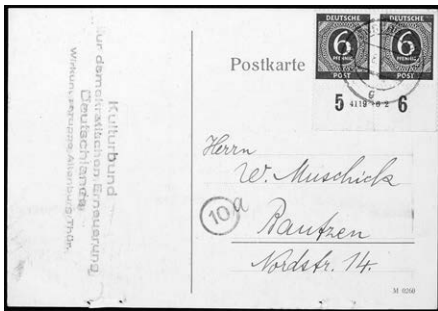 Kulturbund
zur demokratischen Erneuerung
Deutschlands
Wirkungsgruppe Altenburg/Thür.
Postkarte
DEUTSCHE DEUTSCHE
6 6
PFENNIG PFENNIG
POST POST
5 4119 46 2 6
Herrn
W. Muschick
10a
Bautzen
Nordstr. 14.
M 0260